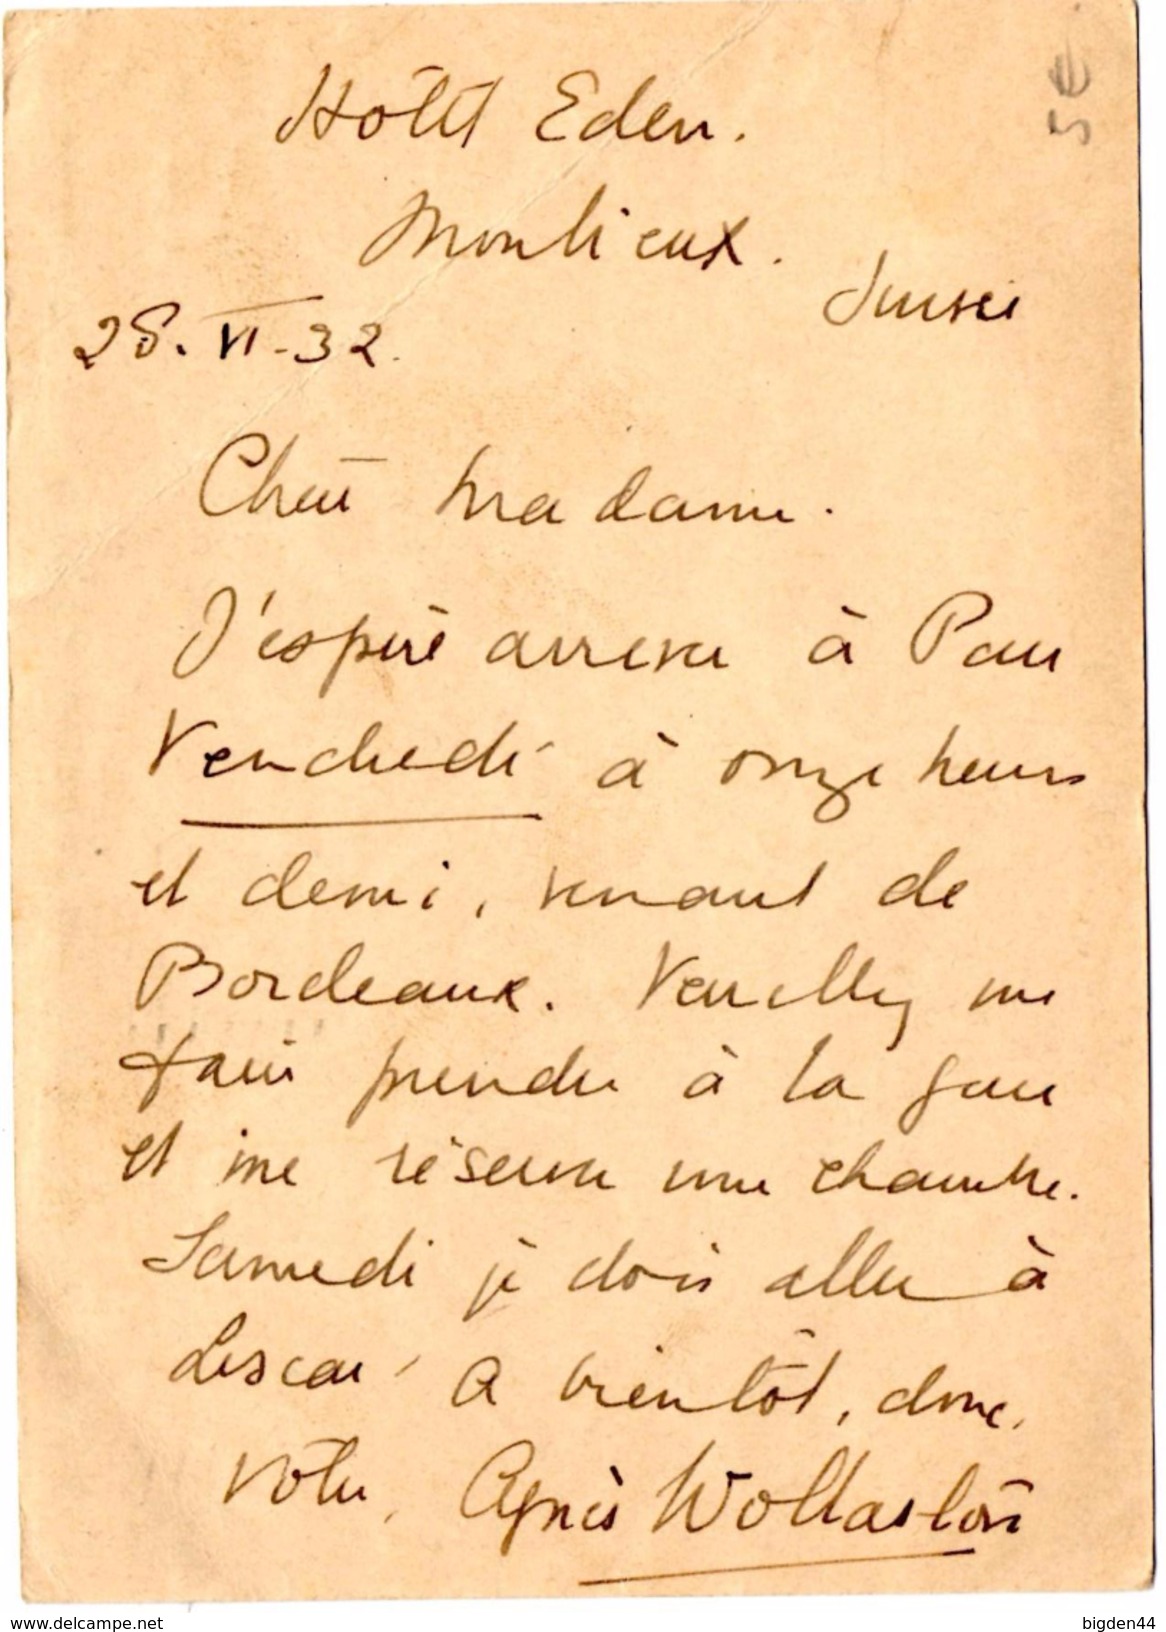 Hôtel Eden.
Montreux.
Suisse
5€
28. VI - 32.
Chère Madame.
J'espère arriver à Pau
Vendredi à onze heures
et demi, venant de
Bordeaux. Veuillez me
faire prendre à la gare
et me réserver une chambre.
Samedi je dois aller à
Lescar. A bientôt, donc,
Votre, Agnès Wollaston
delcampe.net
bigden44